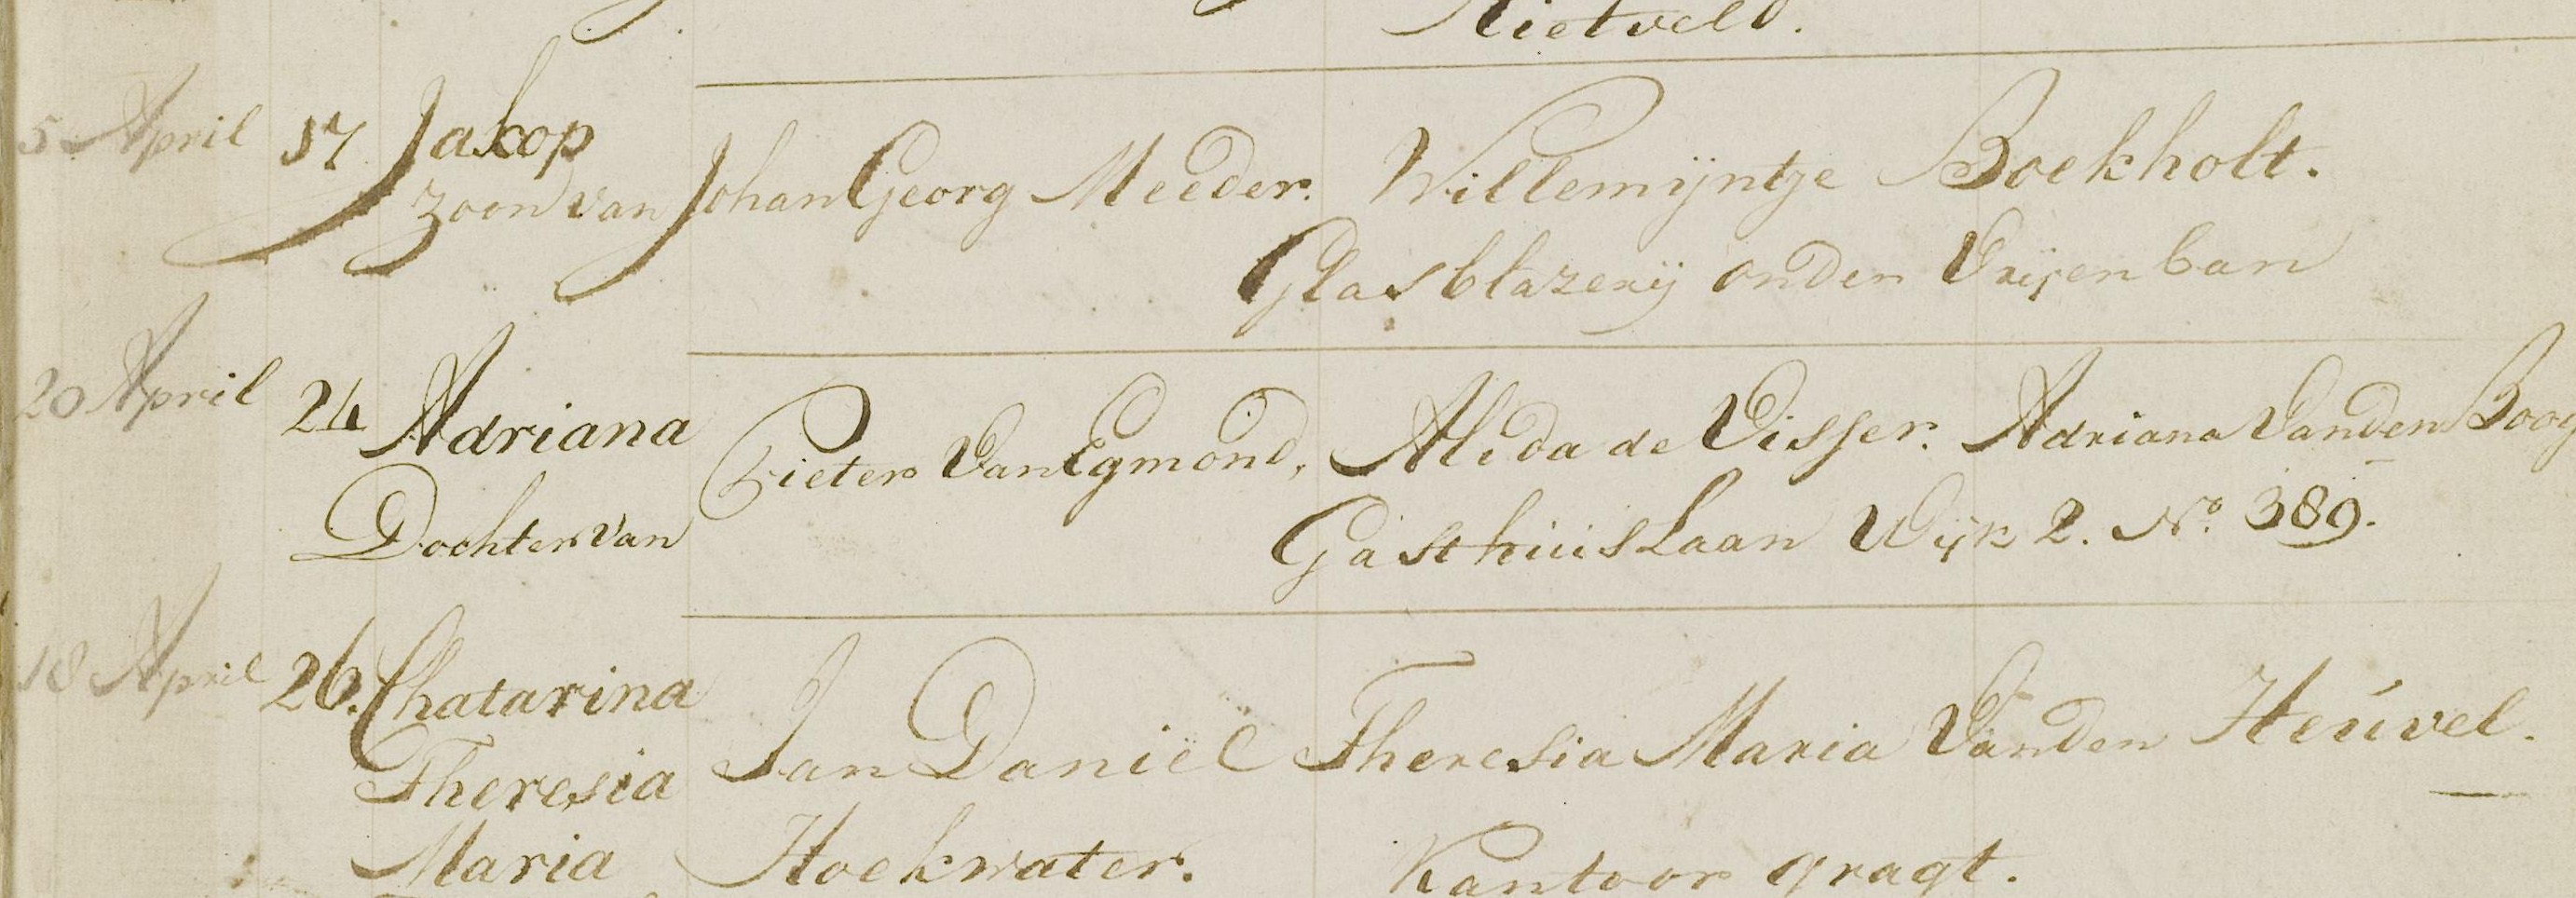 Rietveld.
5 April 17 Jakop
zoon van Johan Georg Meeder. Willemijntje Boekholt.
Glasblazerij onder Vrijenban
20 April 24 Adriana Pieter Van Egmond, Alida de Visser. Adriana Vanden Boog
Dochter van Gasthuis Laan Wijk 2. No. 389.
18 April 26. Chatarina
Theresia Jan Daniël Theresia Maria Vanden Heúvel.
Maria Hoekwater. Kantoor gragt.